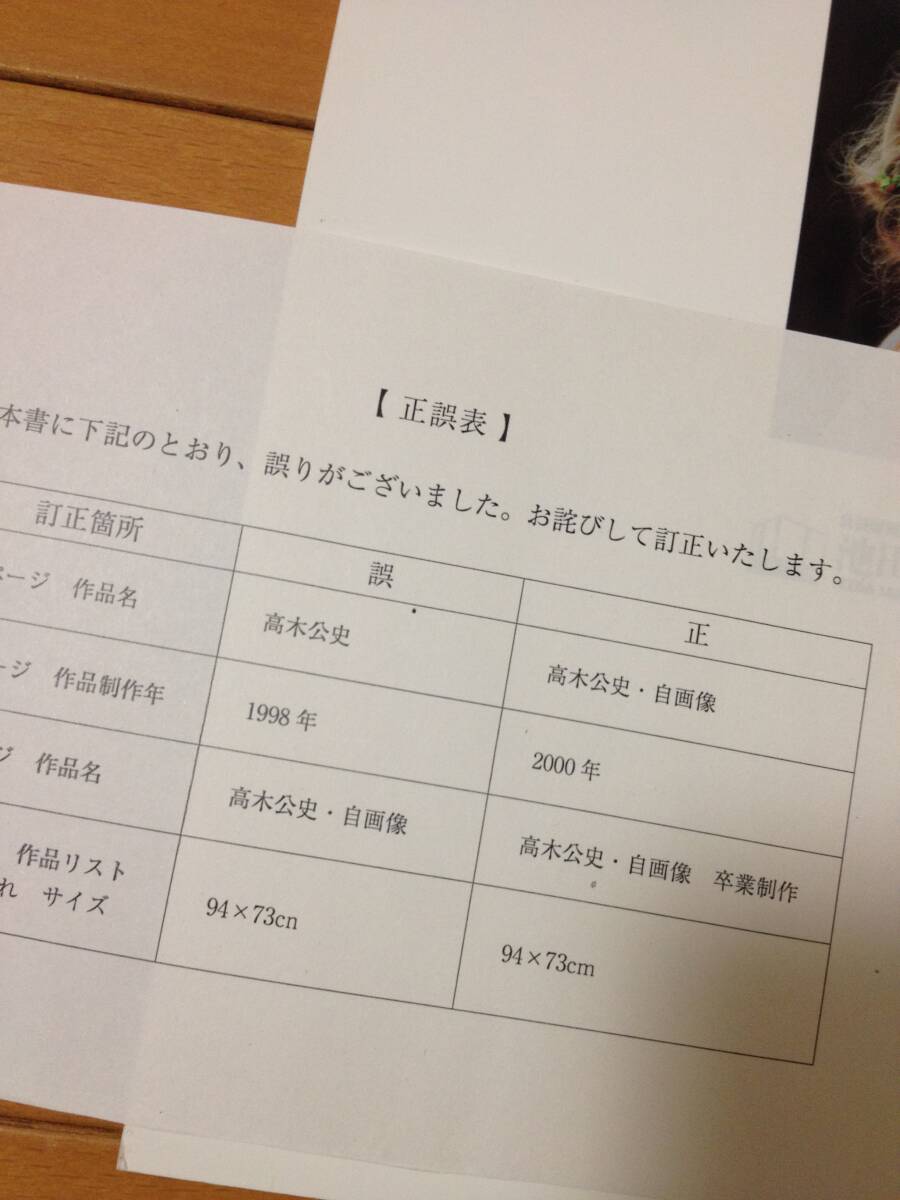 【 正誤表 】
本書に下記のとおり、誤りがございました。お詫びして訂正いたします。
訂正箇所 誤 正
ページ 作品名 高木公史 高木公史・自画像
ージ 作品制作年 1998 年 2000 年
ジ 作品名 高木公史・自画像 高木公史・自画像 卒業制作
作品リスト
れ サイズ 94×73cn 94×73cm